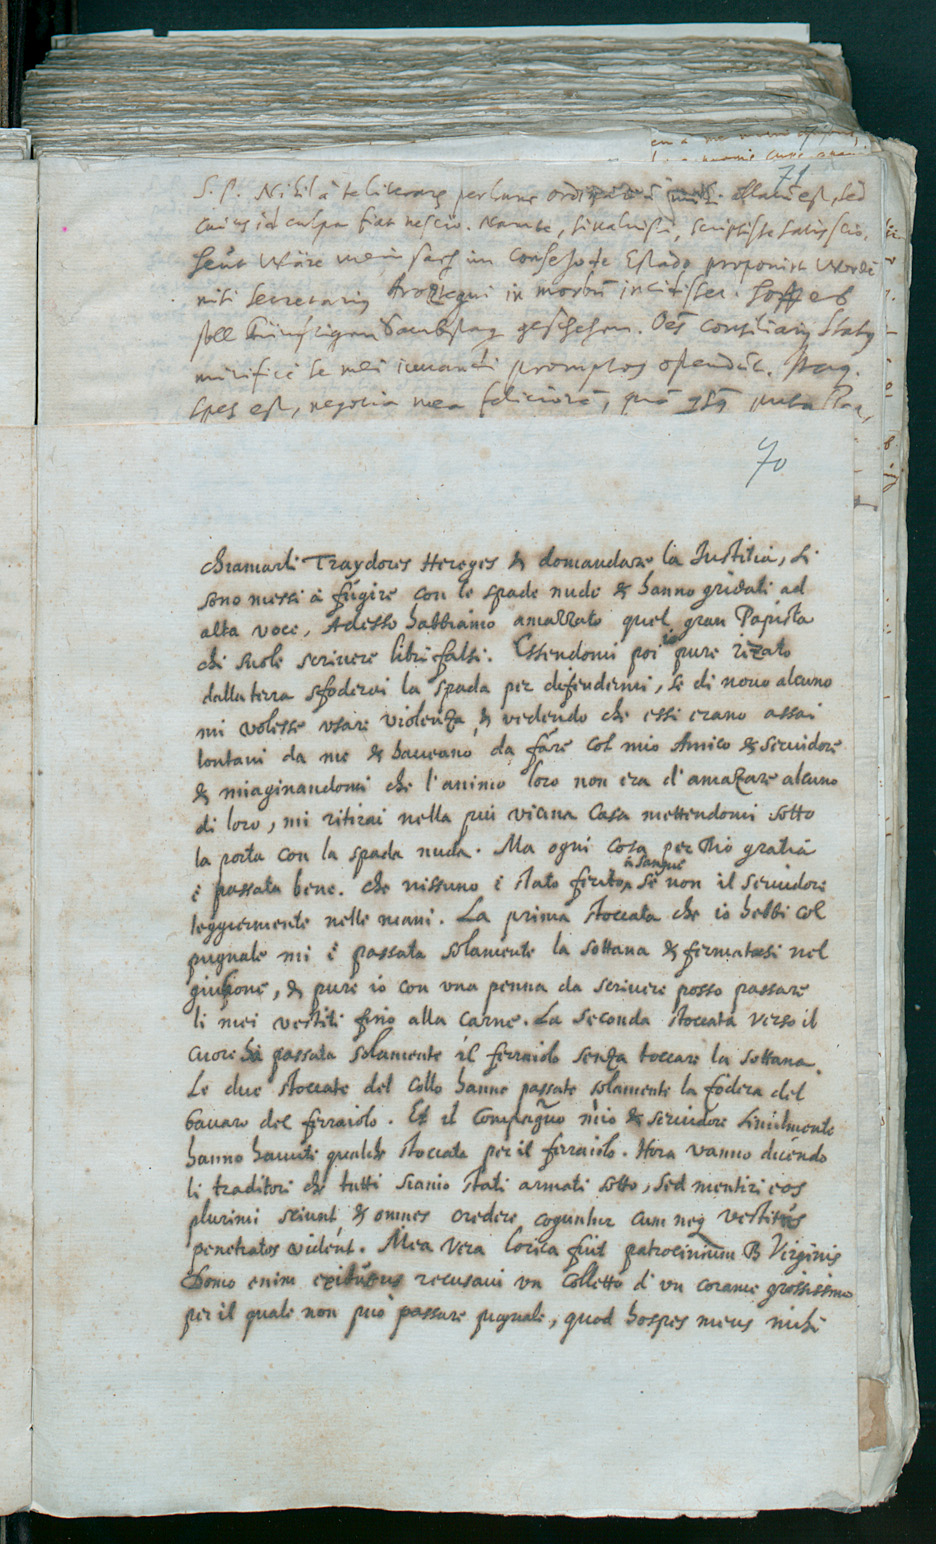 71
S. P. Nihil à te literarum per hunc ordinarium mihi allatum est, sed
cuius id culpa fiat nescio. Nam te, si valuisti, scripsisse satis scio.
heüt wäre mein sach im Consejo de Estado proponirt worden
nisi Secretarius Arostegui in morbum incidisset. hoffe es
soll künfftigen Sambstag geschehen. Omnes Consiliarii Status
mirificè se mei iuvandi promptos ostendunt.
spes est, negotia mea feliciora, quam
70
chiamarli Traydores Hereges & domandare la Justitia, si
sono messi à fugire con le spade nude & hanno gridati ad
alta voce, Adesso habbiamo amazzato quel gran Papista
chi suole scrivere libri falsi. Essendomi poi io pure rizato
dalla terra sfoderai la spada per defendermi, se di novo alcuno
mi volesse usare violenza, & vedendo che essi erano assai
lontani da me & haveano da fare col mio Amico & servidore
& miaginandomi che l'animo loro non era d'amazare alcuno
di loro, mi ritirai nella piu vicina Casa mettendomi sotto
la porta con la spada nuda. Ma ogni cosa per Dio gratia
è passata bene. che nissuno è stato ferito in sangue se non il servidore
leggiermente nelle mani. La prima stoccata che io hebbi col
pugnale mi è passata solamente la sottana & fermatasi nel
giubone, & pure io con una penna da scrivere posso passare
li mei vestiti fino alla carne. La seconda stoccata verso il
cuore hà passata solamente il ferraiolo senza toccare la sottana.
Le due stoccate del collo hanno passate solamente la fodera del
bavaro del ferraiolo. Et il Compagno mio & servidore similmente
hanno havuti qualche stoccata per il ferraiolo. Hora vanno dicendo
li traditori che tutti siamo stati armati sotto, sed mentiri eos
plurimi sciunt, & omnes credere coguntur cum neq vestitus
penetratos vident. Mea vera lorica fuit patrocinium B Virginis
Domo enim exiturus recusavi un Colletto d'un corame grossissimo
per il quale non può passare pugnale, quod hospes meus mihi